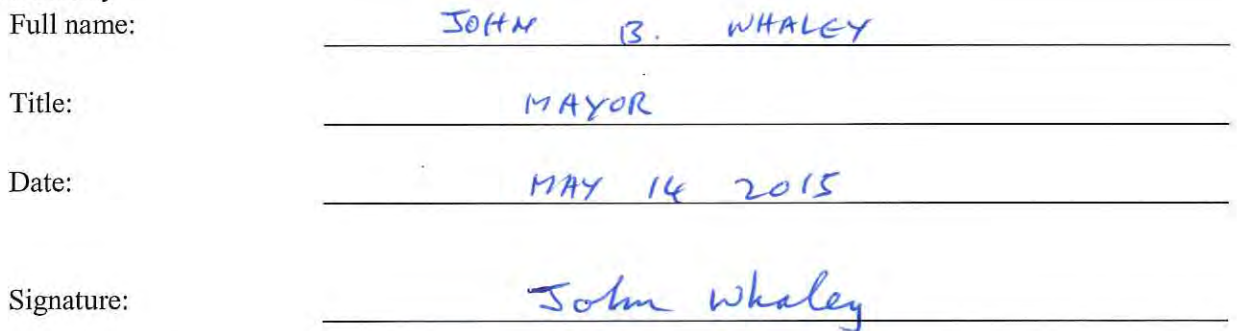 Full name: JOHN B. WHALEY
Title: MAYOR
Date: MAY 14 2015
Signature: John Whaley